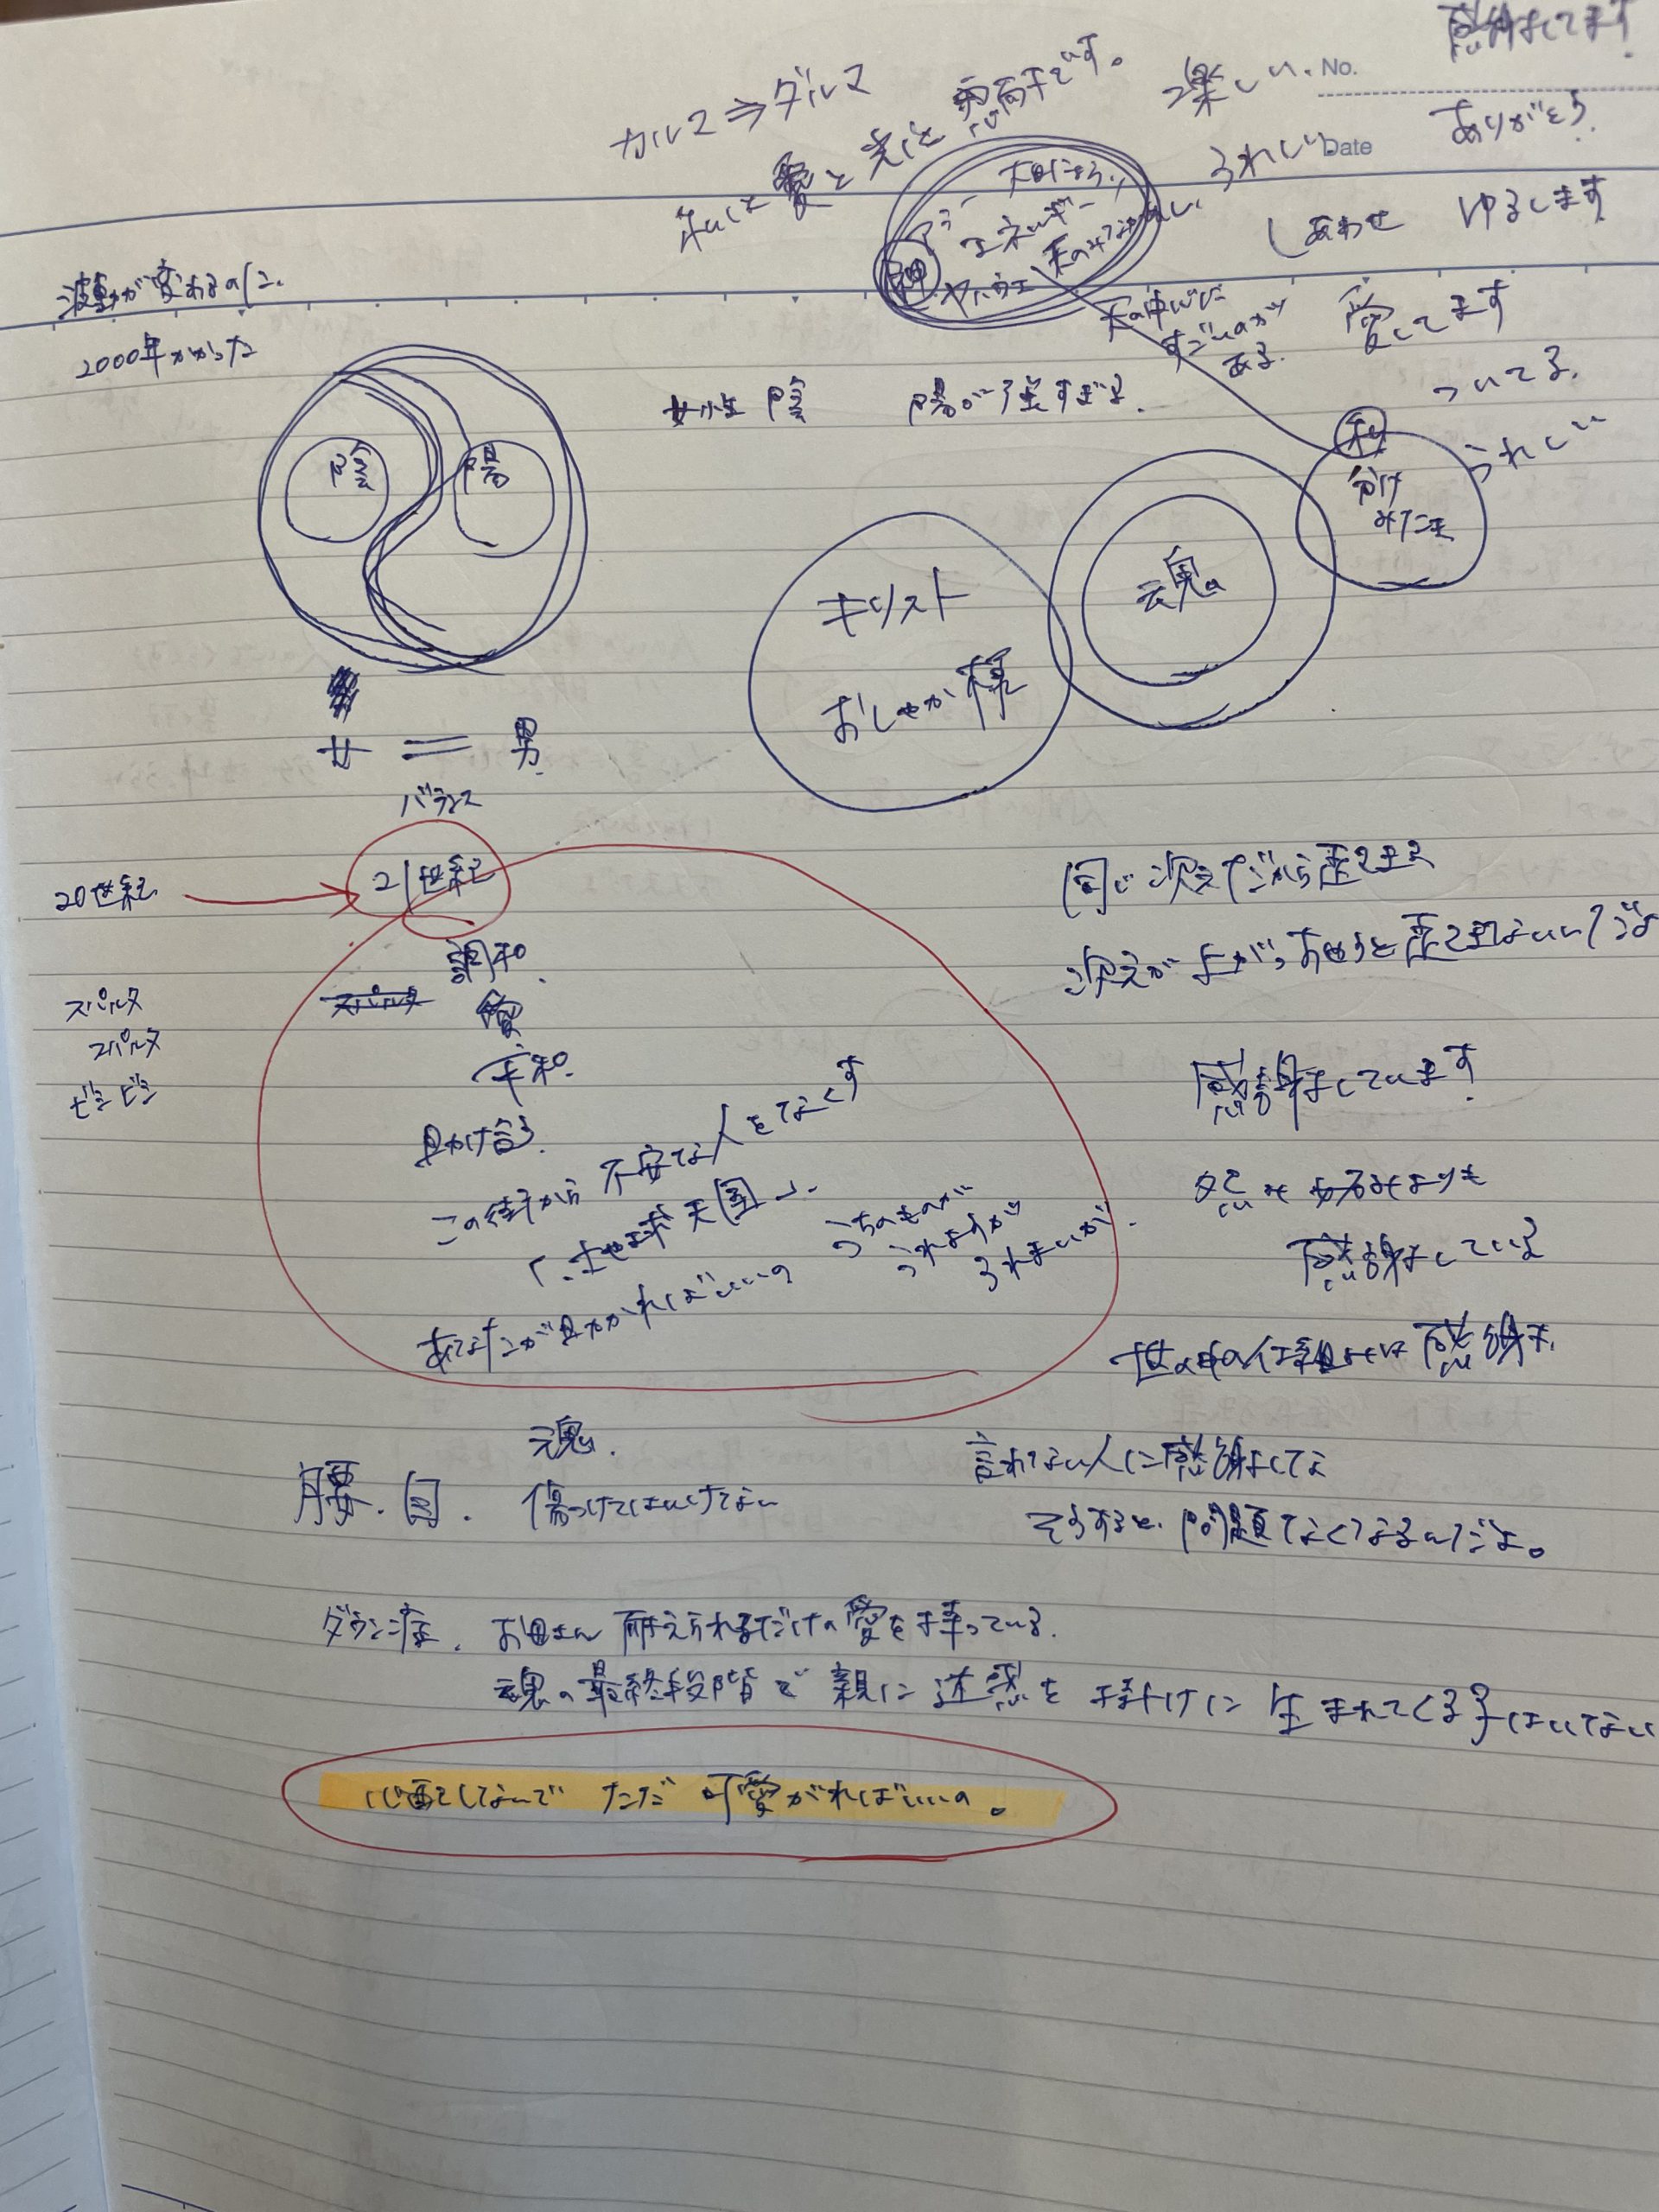 感謝してます
カルマ⇒ダルマ
楽しい
No.
ありがとう
私は愛と光と
です。
うれしい
Date
しあわせ
ゆるします
アラー
エネルギー
神
ヤハウェ
天の中心に
すごいのが
ある.
愛してます
ついてる.
うれしい
波動が変わるのに.
2000年かかった
陰
陽
女性 陰
陽が強すぎる.
私
分け
みたま
魂
キリスト
おしゃか様
女 = 男
バランス
20世紀
21世紀
調和.
愛
平和.
助け合う.
スパルタ
スパルタ
スパルタ
ビシビシ
この街から 不安な人をなくす
「地球天国」.
うちのものが
うれようが
うれまいが.
あなたが助かればいいの
同じ次元だから
次元が上がっ
感謝しています
感謝している
世の中の仕組みは 感謝
腰. 目.
魂.
傷つけてはいけない
言われない人に感謝してな
そうすると、問題なくなるんだよ。
ダウン症. お母さん 耐えられるだけの愛を持っている.
魂の最終段階で 親に迷惑を掛けに 生まれてくる子はいない
心配しないで ただ 可愛がればいいの。